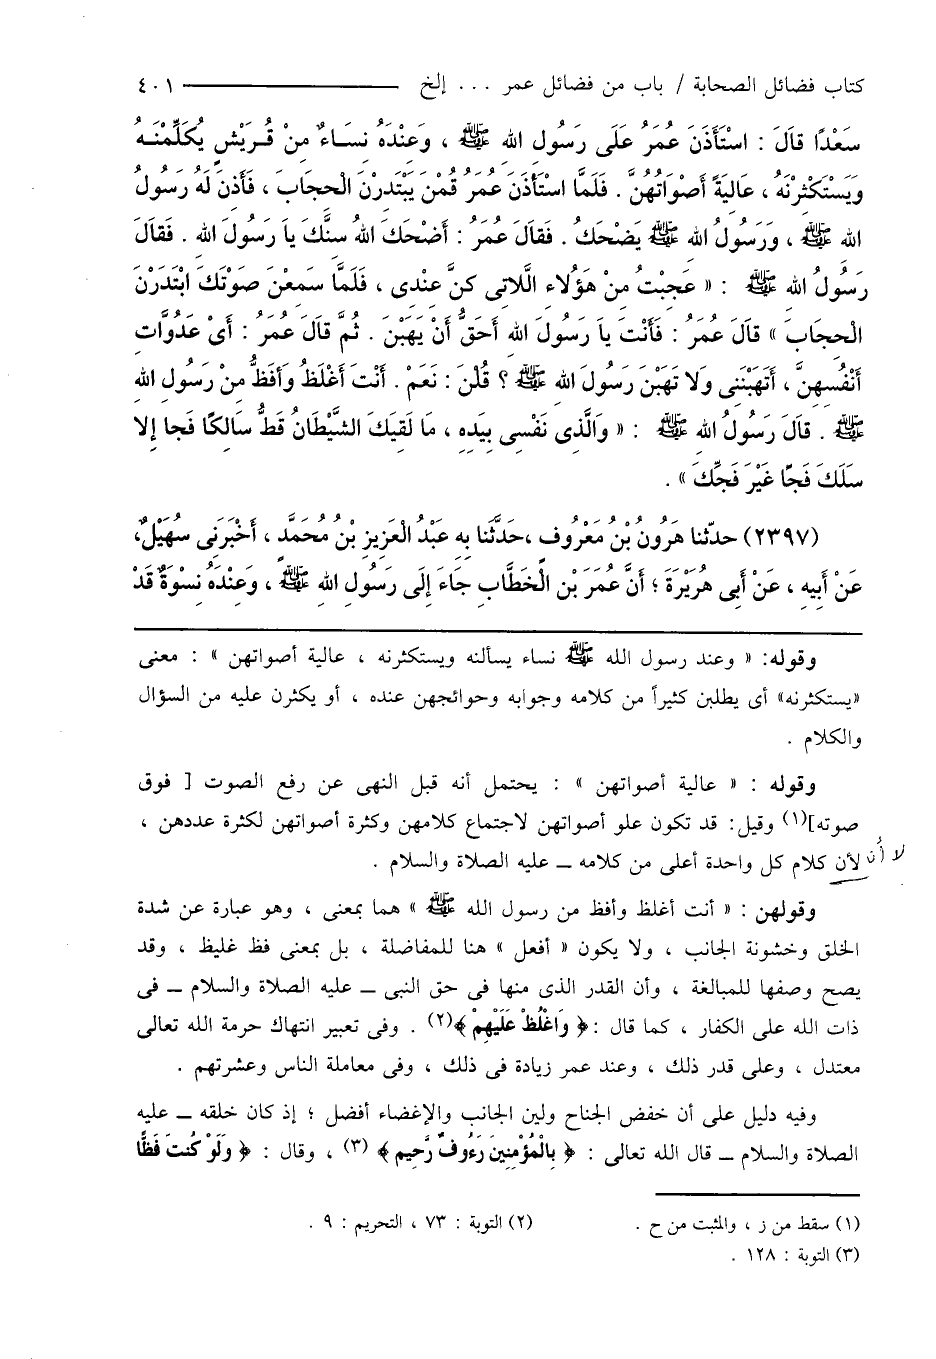 كتاب فضائل الصحابة / باب من فضائل عمر ... إلخ ــــــــــــ ٤٠١
سَعْدًا قَالَ : اسْتَأذَنَ عُمَرُ عَلَى رَسُولِ اللهِ ﷺ ، وَعِنْدَهُ نِسَاءٌ مِنْ قُرَيْشٍ يُكَلِّمْنَهُ
وَيَسْتَكْثِرْنَهُ ، عَالِيَةً أَصْوَاتُهُنَّ . فَلَمَّا اسْتَأذَنَ عُمَرُ قُمْنَ يَبْتَدِرْنَ الْحِجَابَ ، فَأذِنَ لَهُ رَسُولُ
اللهِ ﷺ ، وَرَسُولُ اللهِ ﷺ يَضْحَكُ . فَقَالَ عُمَرُ : أَضْحَكَ اللهُ سِنَّكَ يَا رَسُولَ اللهِ . فَقَالَ
رَسُولُ اللهِ ﷺ : « عَجِبْتُ مِنْ هَؤُلاءِ اللَّاتِى كُنَّ عِنْدِى ، فَلَمَّا سَمِعْنَ صَوْتَكَ ابْتَدَرْنَ
الْحِجَابَ » قَالَ عُمَرُ : فَأَنْتَ يَا رَسُولَ اللهِ أَحَقُّ أَنْ يَهَبْنَ . ثُمَّ قَالَ عُمَرُ : أَىْ عَدُوَّاتِ
أَنْفُسِهِنَّ ، أَتَهَبْنَنِى وَلا تَهَبْنَ رَسُولَ اللهِ ﷺ ؟ قُلْنَ : نَعَمْ . أَنْتَ أَغْلَظُ وَأَفَظُّ مِنْ رَسُولِ اللهِ
ﷺ . قَالَ رَسُولُ اللهِ ﷺ : « وَالَّذِى نَفْسِى بِيَدِهِ ، مَا لَقِيَكَ الشَّيْطَانُ قَطُّ سَالِكًا فَجا إِلا
سَلَكَ فَجًا غَيْرَ فَجِّكَ » .
(٢٣٩٧) حدّثنا هَرُونُ بْنُ مَعْرُوفٍ ،حَدَّثَنَا بِهِ عَبْدُ الْعَزِيزِ بْنُ مُحَمَّدٍ ، أَخْبَرَنِى سُهَيْلٌ،
عَنْ أَبِيهِ ، عَنْ أَبِى هُرَيْرَةَ ؛ أَنَّ عُمَرَ بْنِ الْخَطَّابِ جَاءَ إِلَى رَسُولِ اللهِ ﷺ ، وَعِنْدَهُ نِسْوَةٌ قَدْ
وقوله: « وعند رسول الله ﷺ نساء يسألنه ويستكثرنه ، عالية أصواتهن » : معنى
«يستكثرنه» أى يطلبن كثيراً من كلامه وجوابه وحوائجهن عنده ، أو يكثرن عليه من السؤال
والكلام .
وقوله : « عالية أصواتهن » : يحتمل أنه قبل النهى عن رفع الصوت [ فوق
صوته](١) وقيل: قد تكون علو أصواتهن لاجتماع كلامهن وكثرة أصواتهن لكثرة عددهن ،
لأن كلام كل واحدة أعلى من كلامه ــ عليه الصلاة والسلام .
لا أن
وقولهن : « أنت أغلظ وأفظ من رسول الله ﷺ » هما بمعنى ، وهو عبارة عن شدة
الخلق وخشونة الجانب ، ولا يكون « أفعل » هنا للمفاضلة ، بل بمعنى فظ غليظ ، وقد
يصح وصفها للمبالغة ، وأن القدر الذى منها فى حق النبى ــ عليه الصلاة والسلام ــ فى
ذات الله على الكفار ، كما قال :﴿ وَاغْلُظْ عَلَيْهِمْ ﴾(٢) . وفى تعبير انتهاك حرمة الله تعالى
معتدل ، وعلى قدر ذلك ، وعند عمر زيادة فى ذلك ، وفى معاملة الناس وعشرتهم .
وفيه دليل على أن خفض الجناح ولين الجانب والإغضاء أفضل ؛ إذ كان خلقه ــ عليه
الصلاة والسلام ــ قال الله تعالى : ﴿ بِالْمُؤْمِنِينَ رَءُوفٌ رَّحِيمٌ ﴾ (٣) ، وقال : ﴿ وَلَوْ كُنتَ فَظًّا
(١) سقط من ز ، والمثبت من ح . (٢) التوبة : ٧٣ ، التحريم : ٩ .
(٣) التوبة : ١٢٨ .